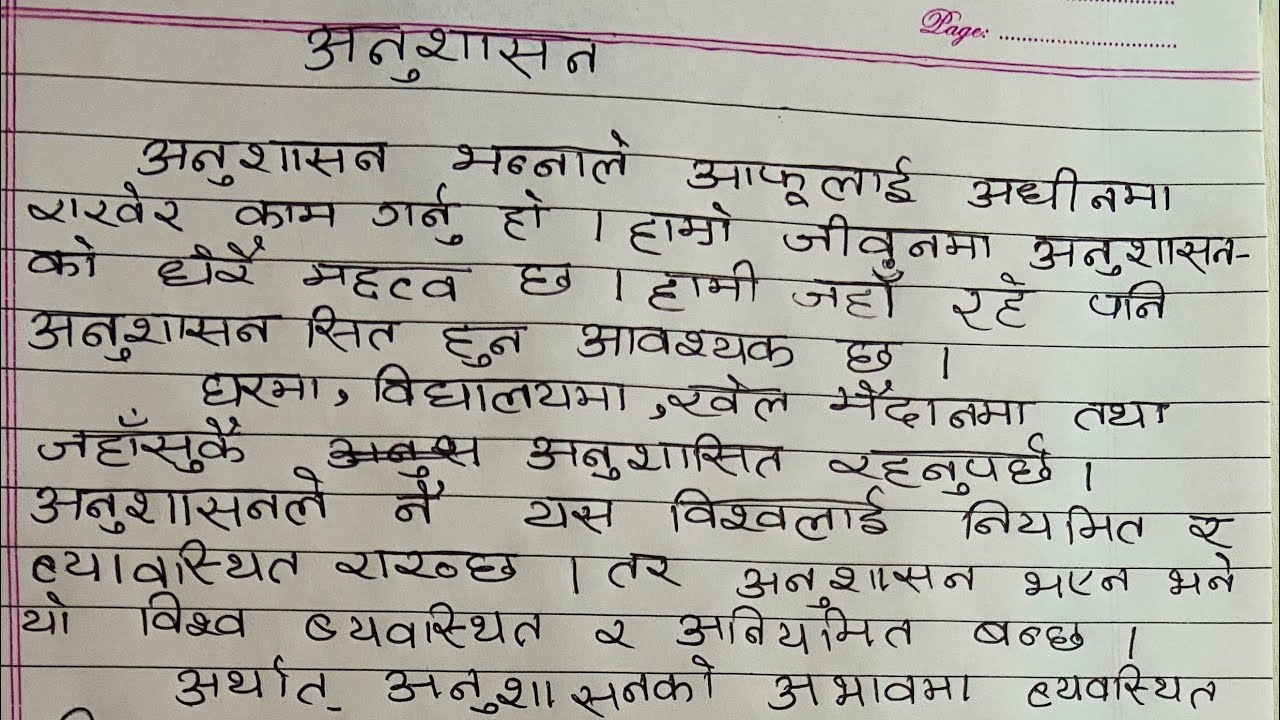 Page: ........................
अनुशासन
अनुशासन भन्नाले आफूलाई अधीनमा
राखेर काम गर्नु हो । हाम्रो जीवनमा अनुशासन-
को धेरै महत्व छ । हामी जहाँ रहे पनि
अनुशासन सित हुन आवश्यक छ ।
घरमा, विद्यालयमा, खेल मैदानमा तथा
जहाँसुकै अनुस अनुशासित रहनुपर्छ ।
अनुशासनले नै यस विश्वलाई नियमित र
व्यावस्थित राख्छ । तर अनुशासन भएन भने
यो विश्व व्यवस्थित र अनियमित बन्छ ।
अर्थात् अनुशासनको अभावमा व्यवस्थित